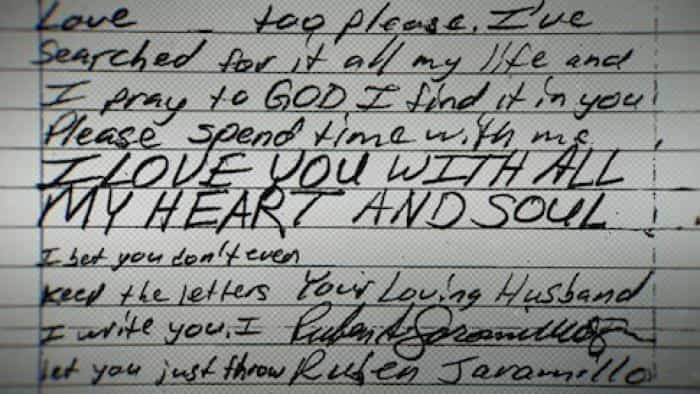 Love too please. I've
Searched for it all my life and
I pray to GOD I find it in you
Please spend time with me,
I LOVE YOU WITH ALL
MY HEART AND SOUL
I bet you don't even
keep the letters Your Loving Husband
I write you. I Ruben A Jaramillo
bet you just throw Ruben Jaramillo